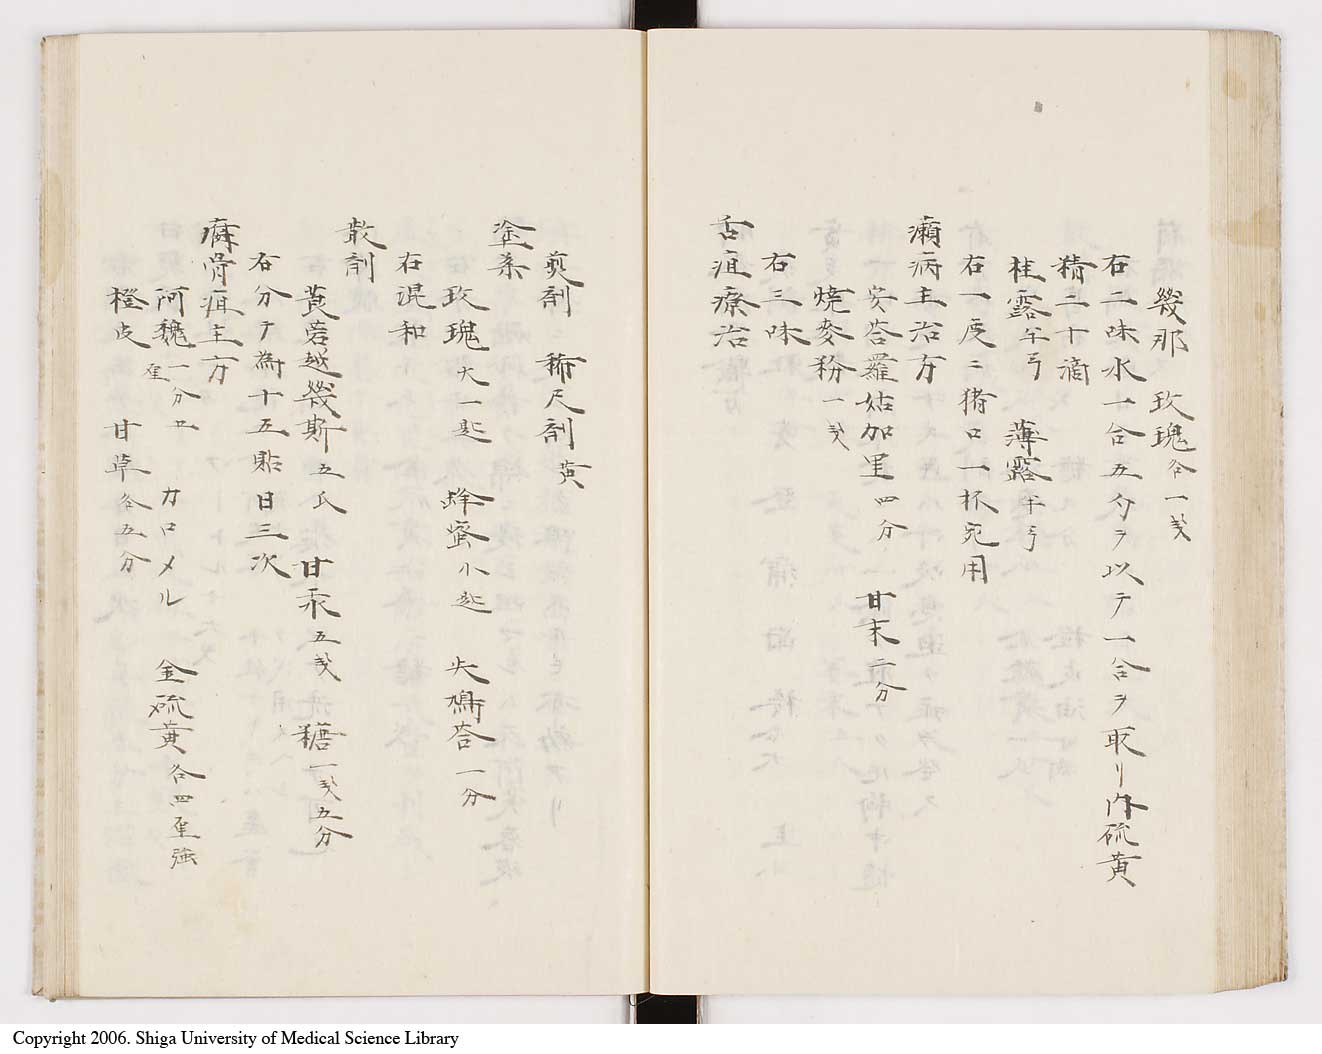 幾那　玫瑰各一戔
右二味水一合五勺ヲ以テ一合ヲ取リ内硫黄
精三十滴
桂露半弓　薄露半弓
右一度ニ猪口一杯宛用
癩病主治方
安荅羅姑加里四分　甘末二分
焼麥粉一戔
右三味
舌疽療治
煎剤　稀尺剤黄
塗条
玫瑰大一匙　蜂蜜小匙　火鳩荅一分
右混和
散剤
莨菪越幾斯五氏　甘汞五戔　糖一戔五分
右分テ為十五貼日三次
痳骨疽主方
阿魏一分　カロメル　金硫黄各四厘強
橙皮　甘草各五分
Copyright 2006. Shiga University of Medical Science Library